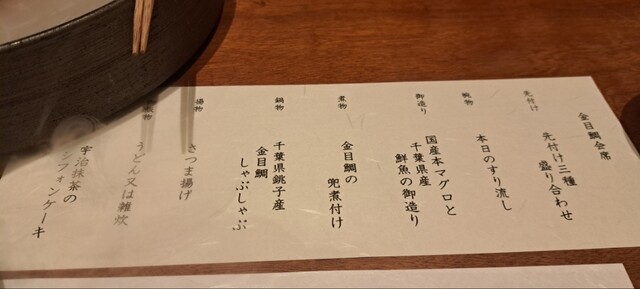 金目鯛会席
先付け
先付け三種
盛り合わせ
椀物
本日のすり流し
御造り
国産本マグロと
千葉県産
鮮魚の御造り
煮物
金目鯛の
兜煮付け
鍋物
千葉県銚子産
金目鯛
しゃぶしゃぶ
揚物
さつま揚げ
うどん又は雑炊
宇治抹茶の
シフォンケーキ